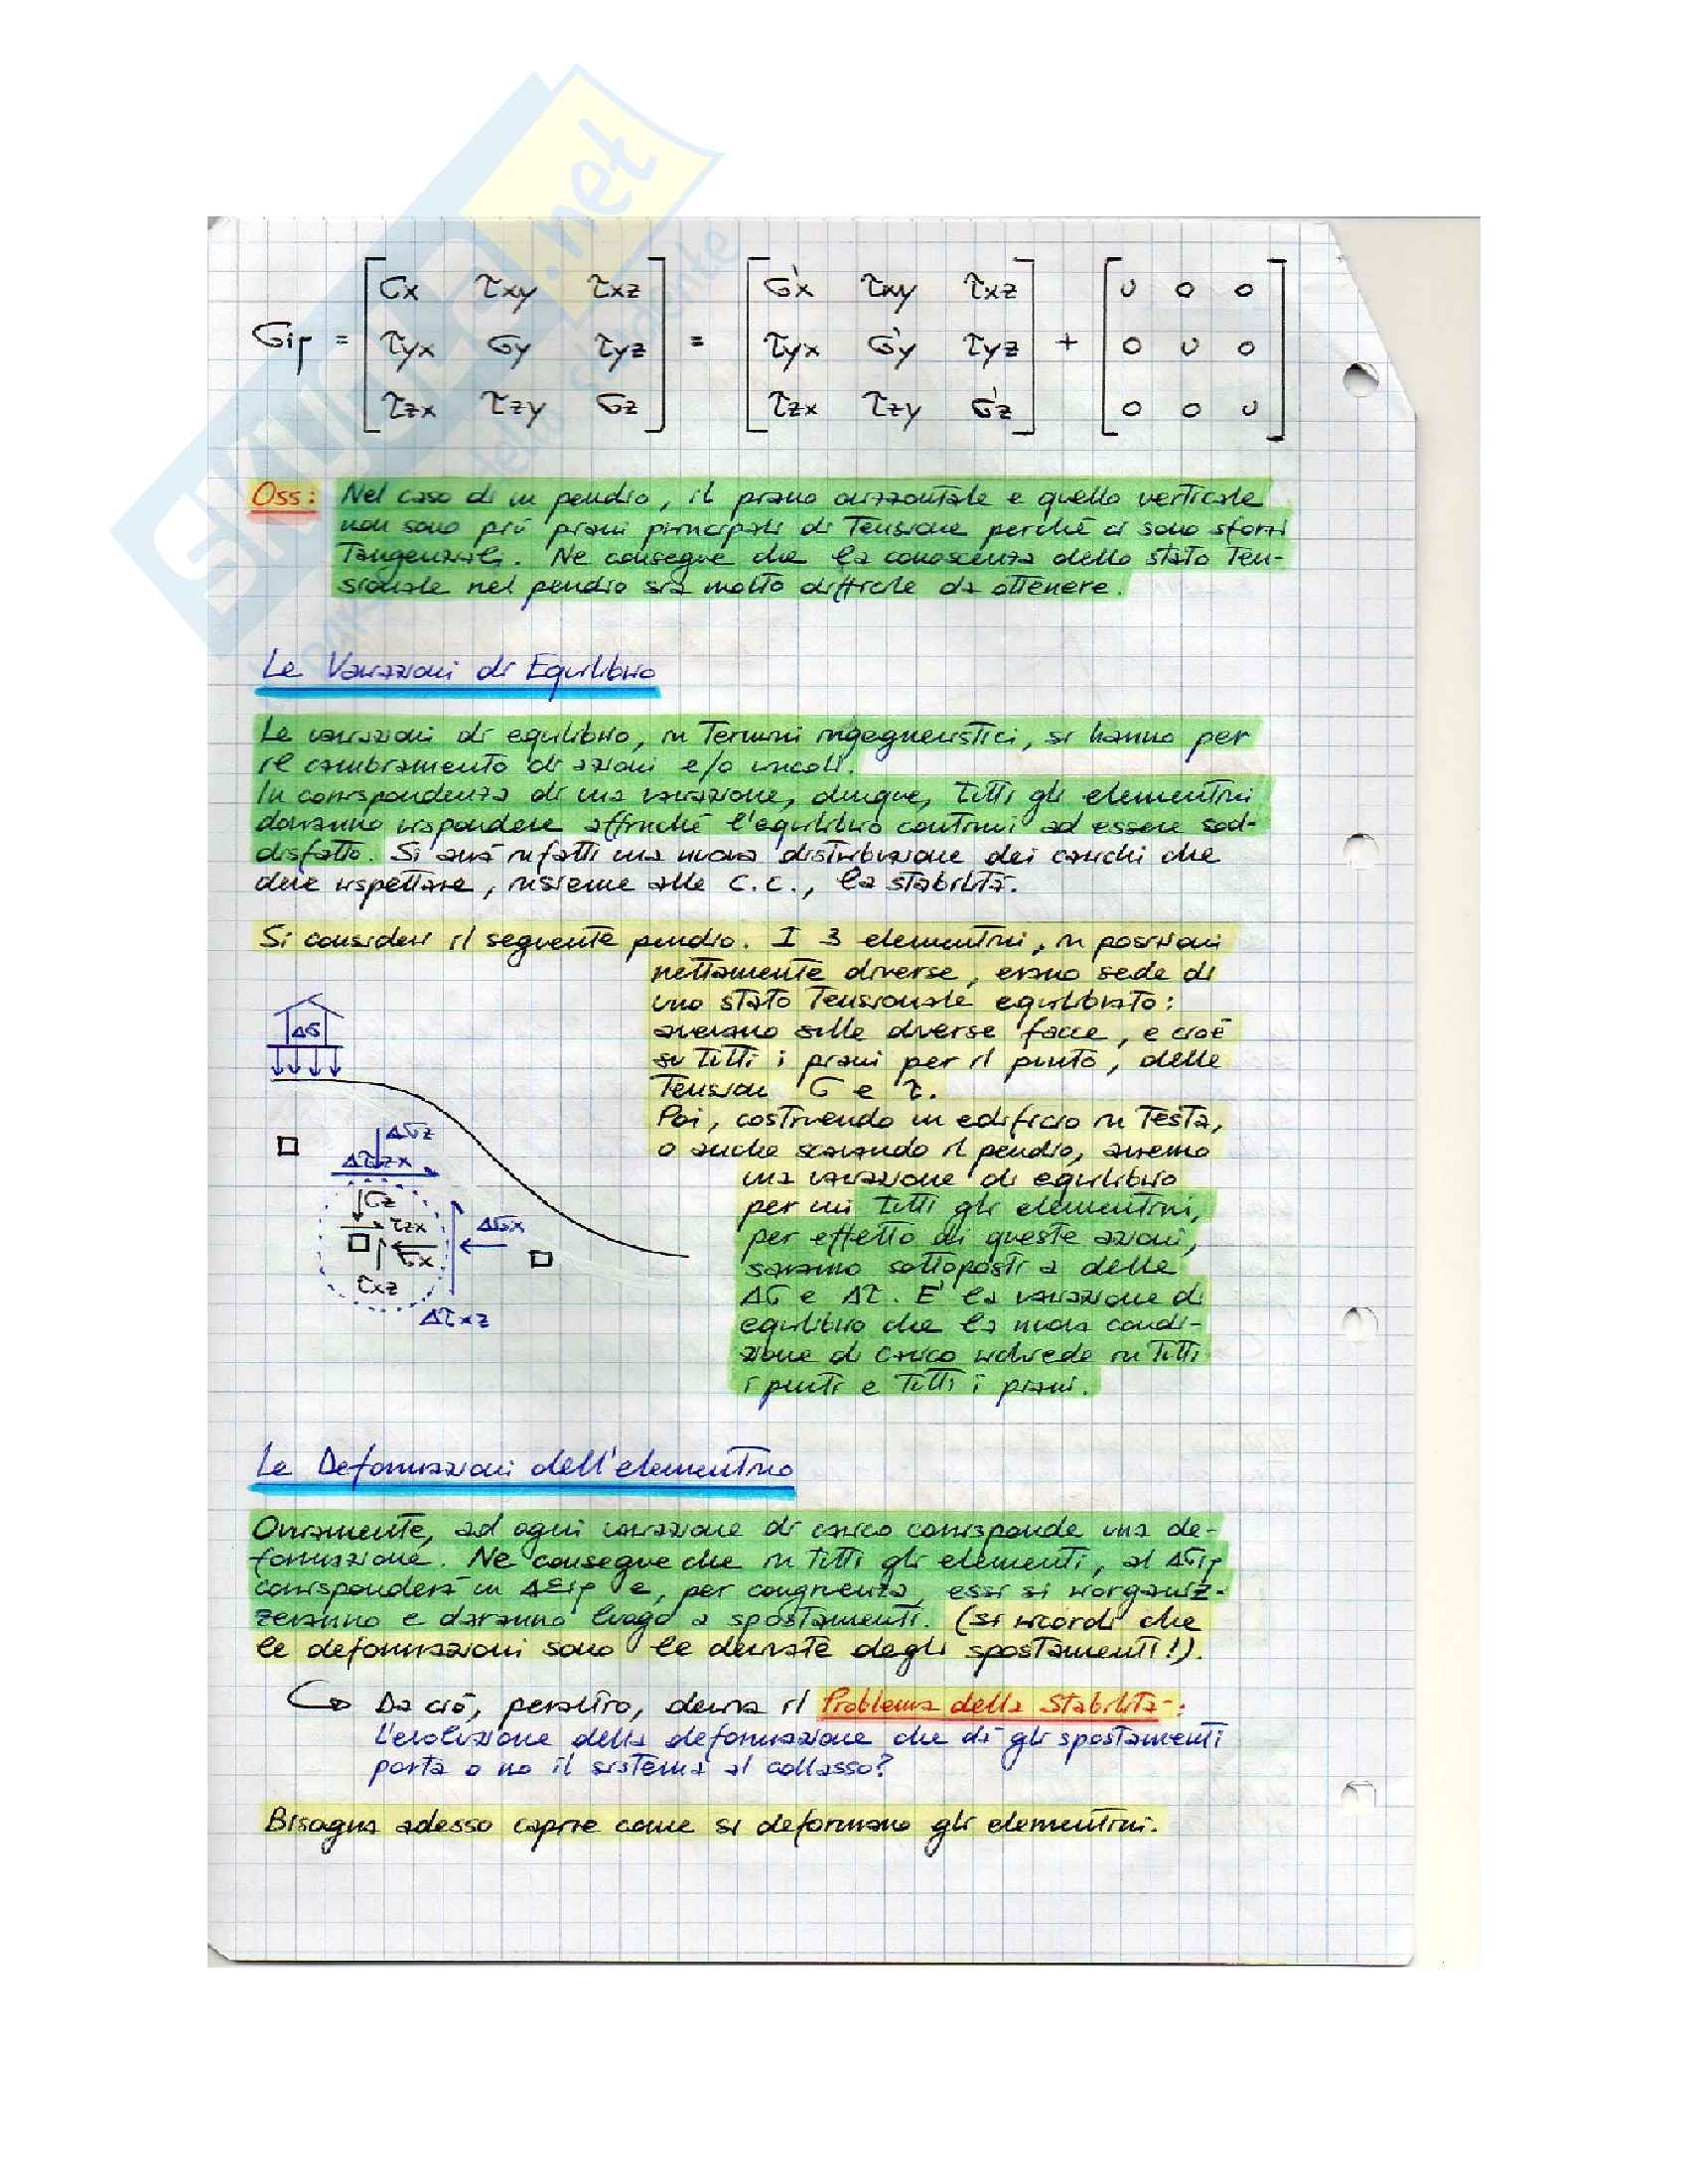 σij = [ σx τxy τxz ] = [ σ'x τxy τxz ] + [ u 0 0 ]
[ τyx σy τyz ] [ τyx σ'y τyz ] [ 0 u 0 ]
[ τzx τzy σz ] [ τzx τzy σ'z ] [ 0 0 u ]
Oss: Nel caso di un pendio, il piano orizzontale e quello verticale
non sono più piani principali di Tensione perché ci sono sforzi
Tangenziali. Ne consegue che la conoscenza dello stato Ten-
sionale nel pendio sia molto difficile da ottenere.
Le Variazioni di Equilibrio
Le variazioni di equilibrio, in Termini ingegneristici, si hanno per
il cambiamento di azioni e/o vincoli.
In corrispondenza di una variazione, dunque, tutti gli elementini
dovranno rispondere affinché l'equilibrio continui ad essere sod-
disfatto. Si avrà infatti una nuova distribuzione dei carichi che
deve rispettare, insieme alle C.C., la stabilità.
Si consideri il seguente pendio. I 3 elementini, in posizioni
nettamente diverse, erano sede di
uno stato Tensionale equilibrato:
avevano sulle diverse facce, e cioè
su tutti i piani per il punto, delle
Tensioni σ e τ.
Poi, costruendo un edificio in Testa,
o anche scavando il pendio, avremo
una variazione di equilibrio
per cui tutti gli elementini,
per effetto di queste azioni,
saranno sottoposti a delle
Δσ e Δτ. E' la variazione di
equilibrio che la nuova condi-
zione di carico richiede in tutti
i punti e tutti i piani.
Δσ
Δσz
Δτzx
σz
τzx
σx
τxz
Δσx
Δτxz
Le Deformazioni dell'elementino
Ovviamente, ad ogni variazione di carico corrisponde una de-
formazione. Ne consegue che in tutti gli elementi, al Δσij
corrisponderà un Δεij e, per congruenza, essi si riorganiz-
zeranno e daranno luogo a spostamenti. (si ricordi che
le deformazioni sono le derivate degli spostamenti!).
Da ciò, peraltro, deriva il Problema della Stabilità:
L'evoluzione della deformazione che dà gli spostamenti
porta o no il sistema al collasso?
Bisogna adesso capire come si deformano gli elementini.